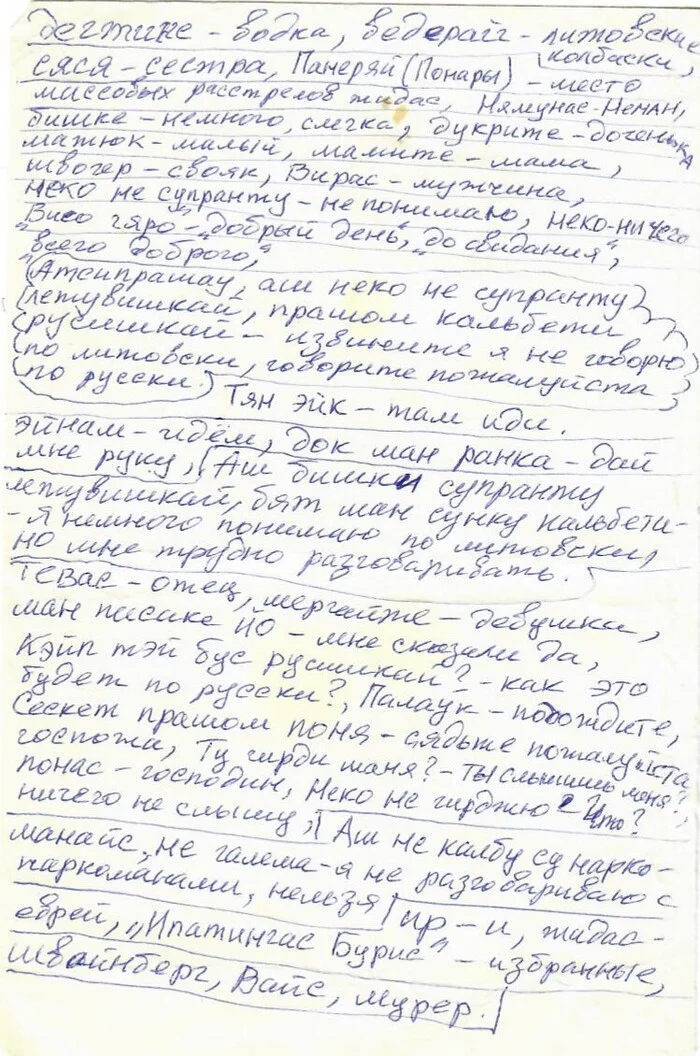 дегтине - водка, ведерайг - литовские
колбаски,
сяся - сестра, Панеряй (Понары) - место
массовых расстрелов жидас, Нямунас - Неман,
бишке - немного, слегка, дукрите - доченька
мажюк - малый, мамите - мама,
швогер - свояк, Вирас - мужчина,
неко не супранту - не понимаю, неко - ничего
"Висо гяро" - "добрый день", "до свидания",
"всего доброго",
Атсипрашау, аш неко не супранту
летувишкай, прашом кальбети
русишкай - извините я не говорю
по литовски, говорите пожалуйста
по русски.
Тян эйк - там иди.
эйнам - идём, док ман ранка - дай
мне руку, Аш бишки супранту
летувишкай, бят ман сунку кальбети -
- Я немного понимаю по литовски,
но мне трудно разговаривать.
Тевас - отец, мергайте - девушка,
ман пасаке йо - мне сказали да,
Кэйп тэй бус русишкай? - как это
будет по русски?, Палаук - подождите,
Сескет прашом поня - сядьте пожалуйста
госпожа, Ту гирди маня? - ты слышишь меня?,
понас - господин, Неко не гирджю - что?
ничего не слышу, Аш не калбу су нарко-
манайс, не галема - я не разговариваю с
наркоманами, нельзя, ир - и, жидас -
еврей, "Ипатингас Бурис" - избранные,
швайнберг, Вайс, мурер.